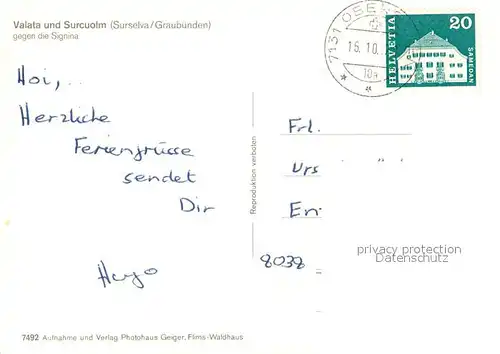 Valata und Surcuolm (Surselva/Graubünden)
gegen die Signina
Hoi,..
Herzliche
Feriengrüsse
sendet
Dir
Hugo
Reproduktion verboten
7131 OBER
15.10.
10
HELVETIA
20
SAMEDAN
Frl.
Urs
Eri
8038
privacy protection
Datenschutz
7492 Aufnahme und Verlag Photohaus Geiger, Flims-Waldhaus